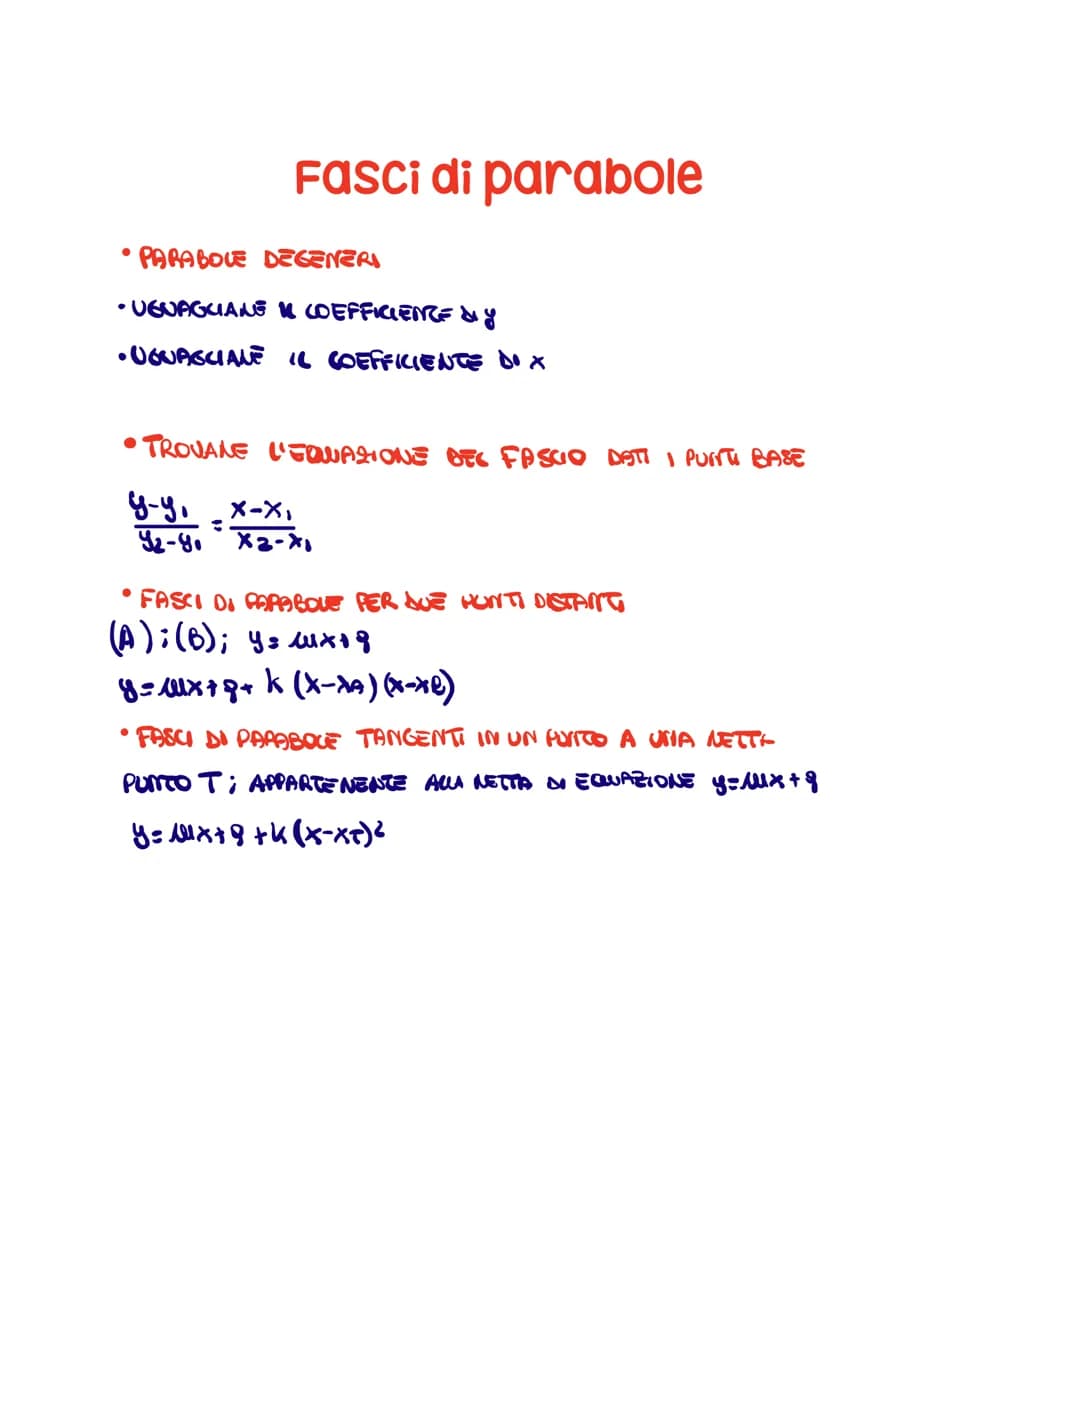 Fasci di parabole
• PARABOLE DEGENERI
• UGUAGLIARE IL COEFFICIENTE DI y
• UGUAGLIARE IL COEFFICIENTE DI x
• TROVARE L'EQUAZIONE DEL FASCIO DATI I PUNTI BASE
y-y₁/y₂-y₁ = x-x₁/x₂-x₁
• FASCI DI PARABOLE PER DUE PUNTI DISTANTI
(A);(B); y=mx+q
y=mx+q+ k (x-xA)(x-xB)
• FASCI DI PARABOLE TANGENTI IN UN PUNTO A UNA RETTA
PUNTO T; APPARTENENTE ALLA RETTA DI EQUAZIONE y=mx+q
y=mx+q+k(x-xT)²